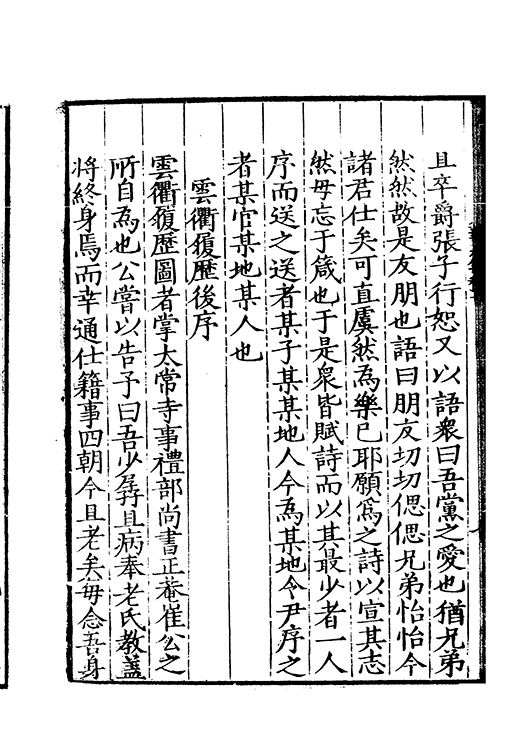 且卒爵張子行恕又以語衆曰吾黨之愛也猶兄弟
然然故是友朋也語曰朋友切切偲偲兄弟怡怡今
諸君仕矣可直虞然為樂已耶願爲之詩以宣其志
然毋忘于箴也于是衆皆賦詩而以其最少者一人
序而送之送者某子某某地人今為某地令尹序之
者某官某地某人也
雲衢復歷後序
雲衢復歷圖者掌太常寺事禮部尚書正菴崔公之
所自為也公嘗以告予曰吾少孱且病奉老氏教蓋
將終身焉而幸通仕籍事四朝今且老矣毋念吾身